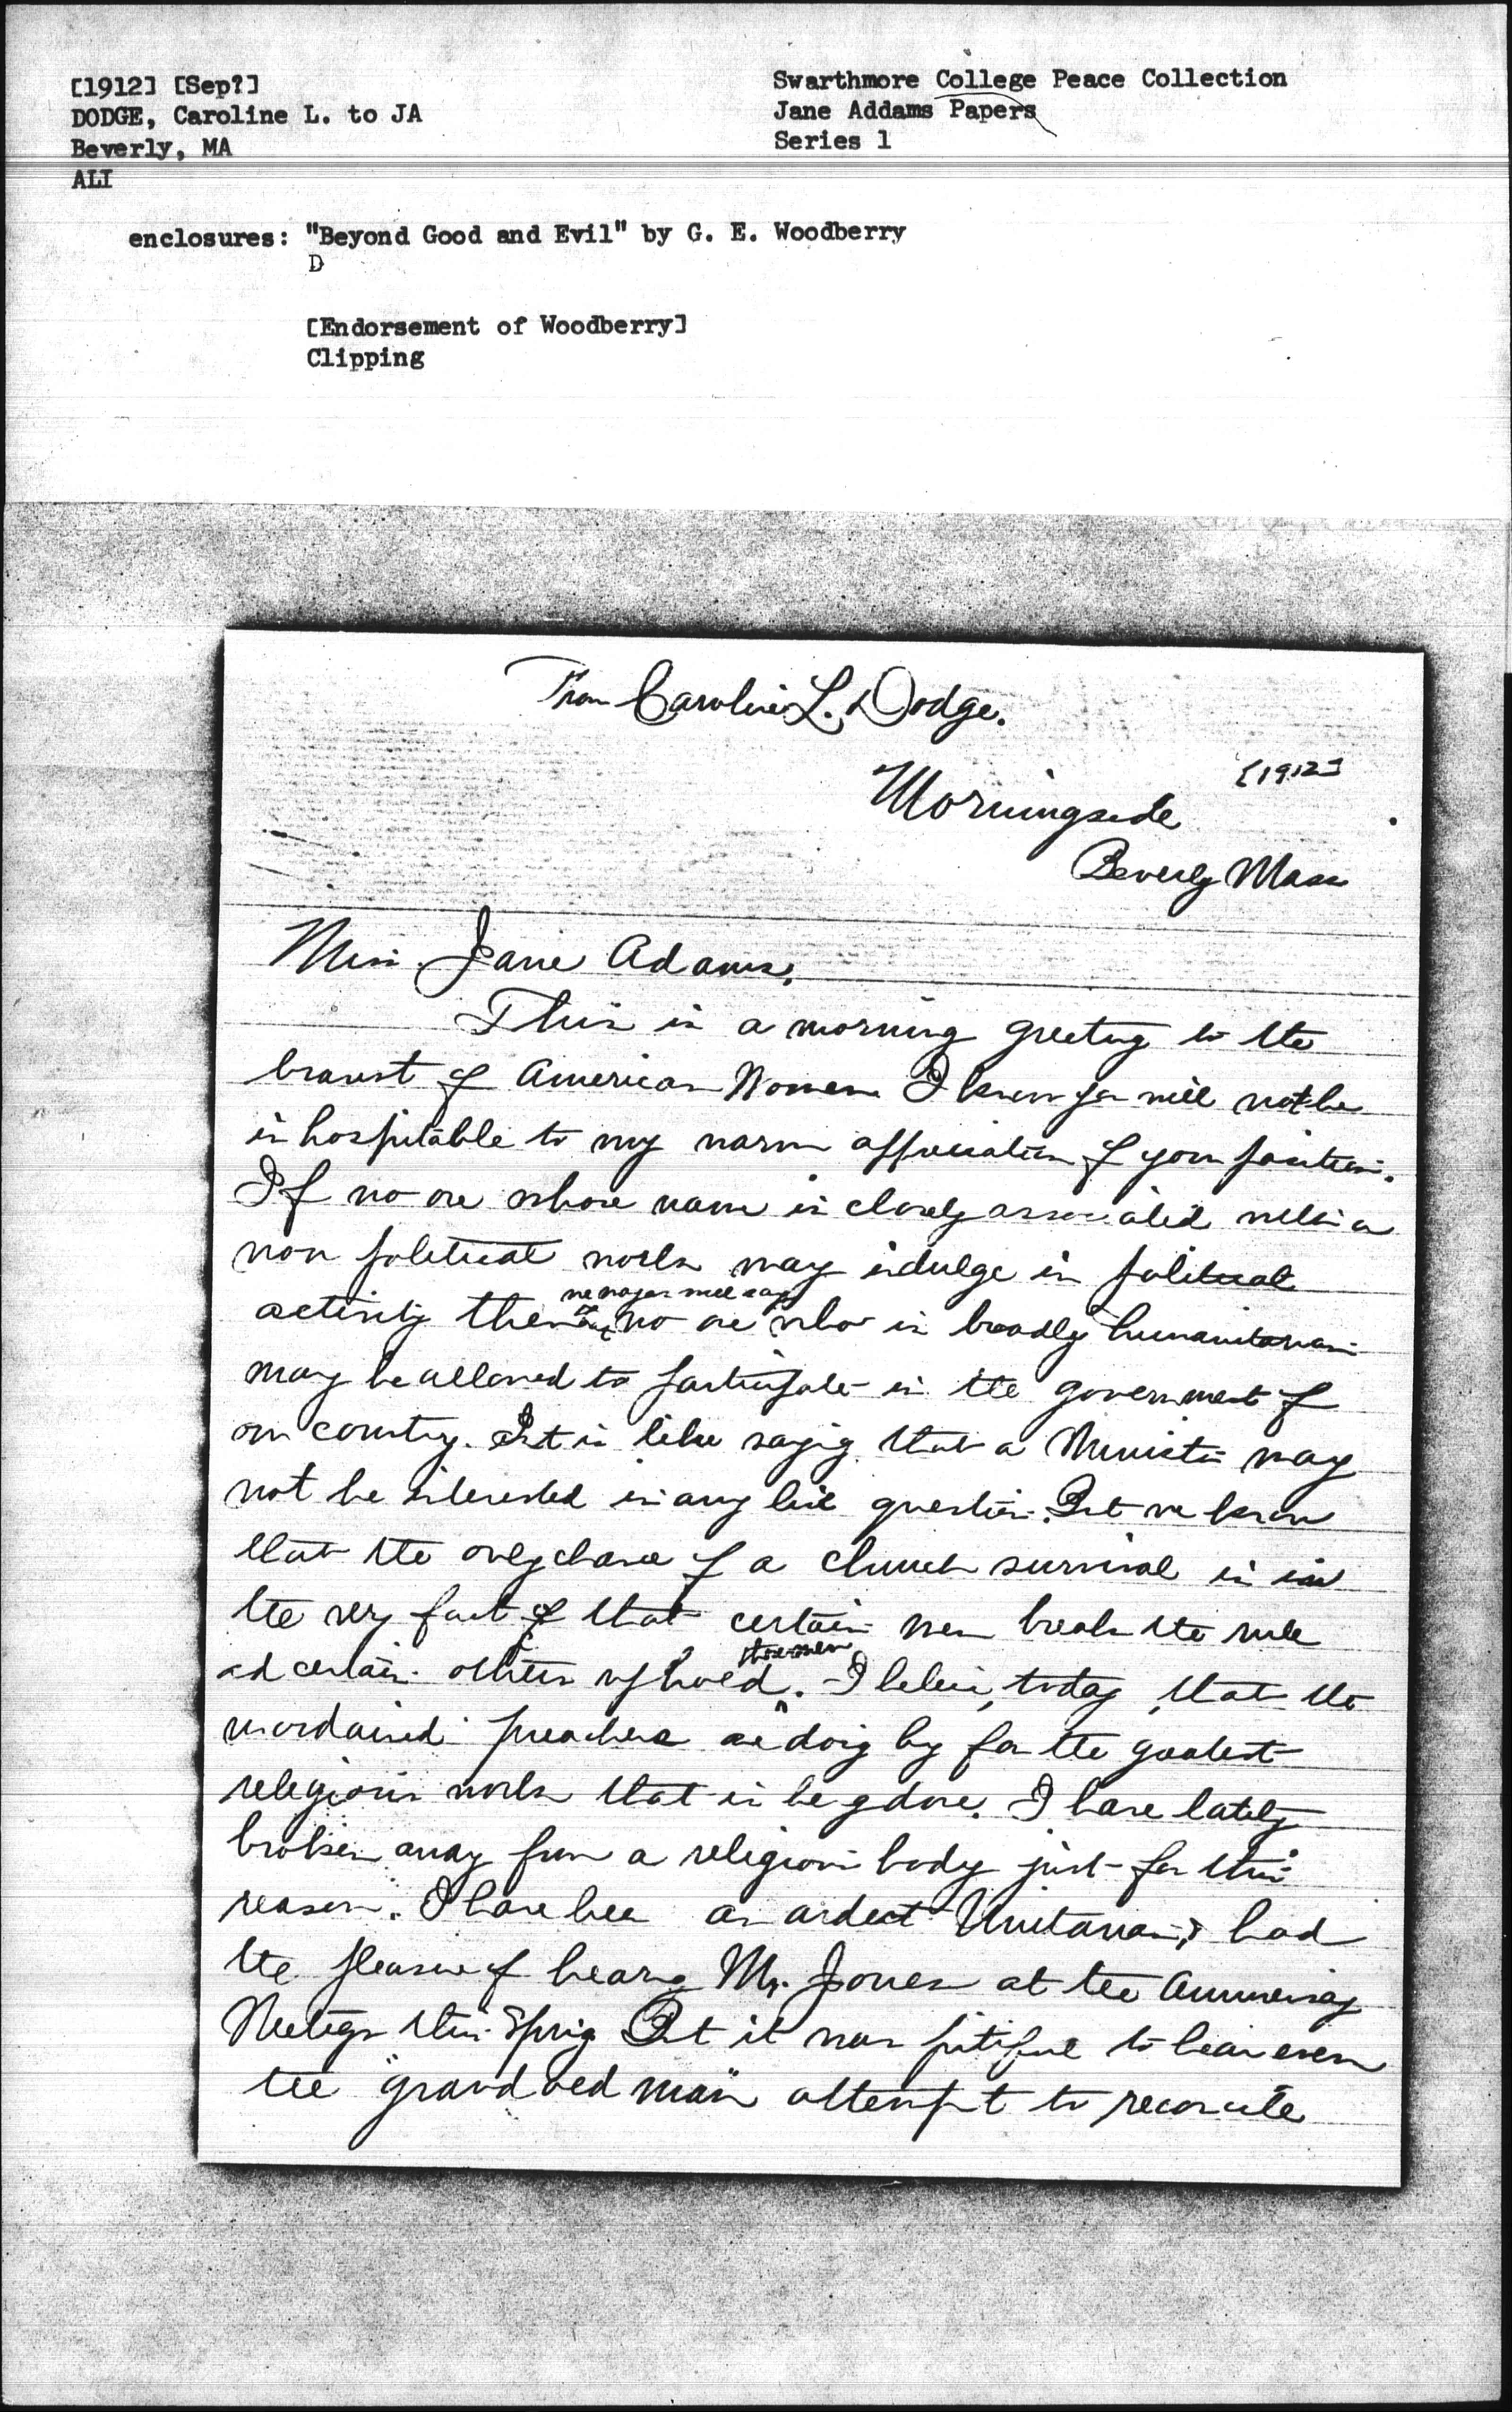 [1912] [Sep?]
DODGE, Caroline L. to JA
Beverly, MA
ALI
Swarthmore College Peace Collection
Jane Addams Papers
Series 1
enclosures: "Beyond Good and Evil" by G. E. Woodberry
D
[Endorsement of Woodberry]
Clipping
From Caroline L. Dodge.
[1912]
Morningside
Beverly Mass
Miss Jane Adams,
This is a morning greeting to the
bravest of American Women I know you will not be
inhospitable to my warm appreciation of your position.
If no one whose name is closely associated with a
non political work may indulge in political
activity then we may as well say no one who is broadly humanitarian
may be allowed to participate in the government of
our country. It is like saying that a Minister may
not be interested in any live question. But we know
that the only chance of a church survival is in
the very fact of that certain men break the rule
and certain others uphold those men. I believe, today, that the
unordained preachers are doing by far the greatest
religious work that is being done. I have lately
broken away from a religious body just for this
reason. I have been an ardent Unitarian, & had
the pleasure of hearing Mr. Jones at the Anniversary
Meetings this Spring But it was pitiful to hear even
the "grand old man" attempt to reconcile